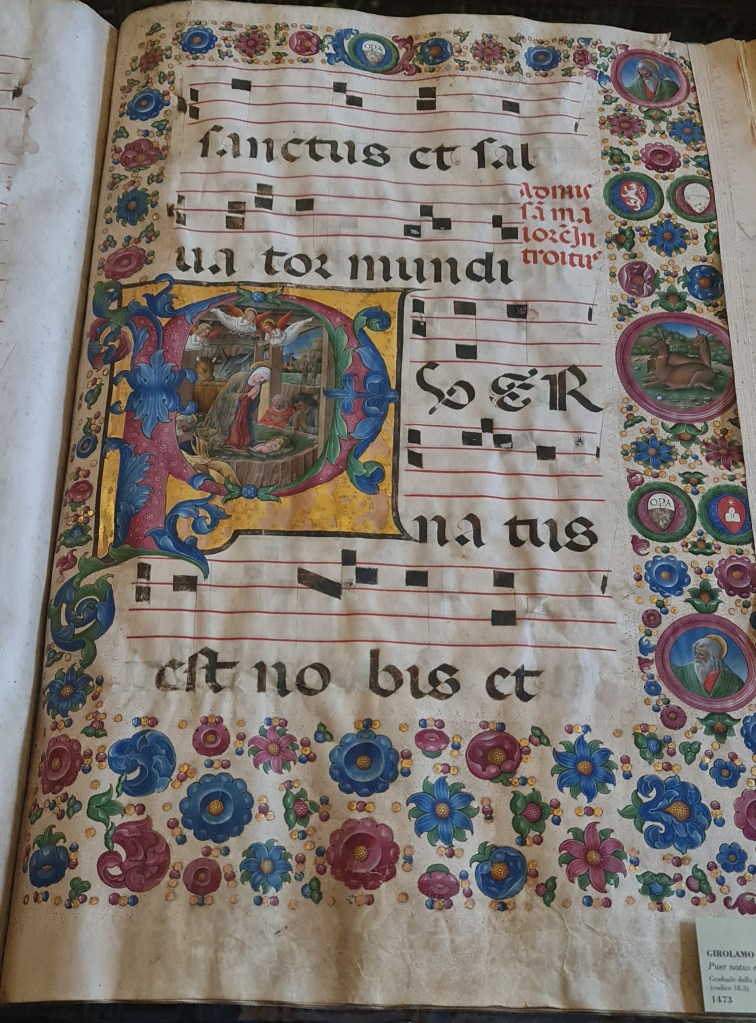 OPA
sanctus et sal
ad mis
sã ma
iorẽ In
troitus
ua tor mundi
PVER
na tus
OPA
est no bis et
GIROLAMO
Puer natus e
Graduale dalla
(codice 18.3)
1473